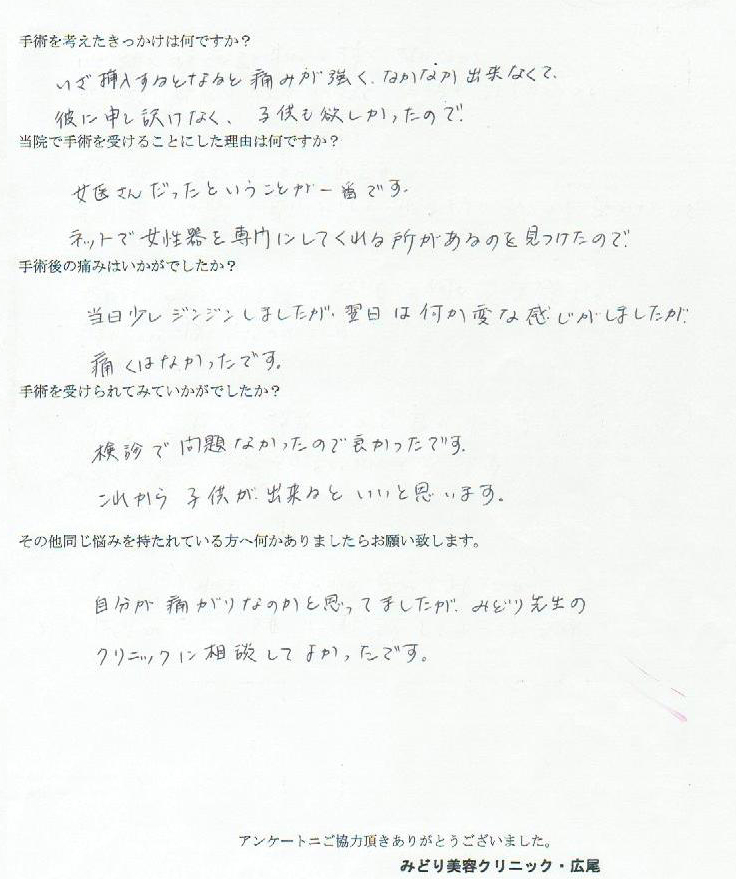 手術を考えたきっかけは何ですか？
いざ挿入するとなると痛みが強く、なかなか出来なくて、
彼に申し訳けなく、子供も欲しかったので。
当院で手術を受けることにした理由は何ですか？
女医さんだったということが一番です。
ネットで女性器を専門にしてくれる所があるのを見つけたので。
手術後の痛みはいかがでしたか？
当日少しジンジンしましたが、翌日は何か変な感じがしましたが、
痛くはなかったです。
手術を受けられてみていかがでしたか？
検診で問題なかったので良かったです。
これから子供が出来るといいと思います。
その他同じ悩みを持たれている方へ何かありましたらお願い致します。
自分が痛がりなのかと思ってましたが、みどり先生の
クリニックに相談してよかったです。
アンケートニご協力頂きありがとうございました。
みどり美容クリニック・広尾